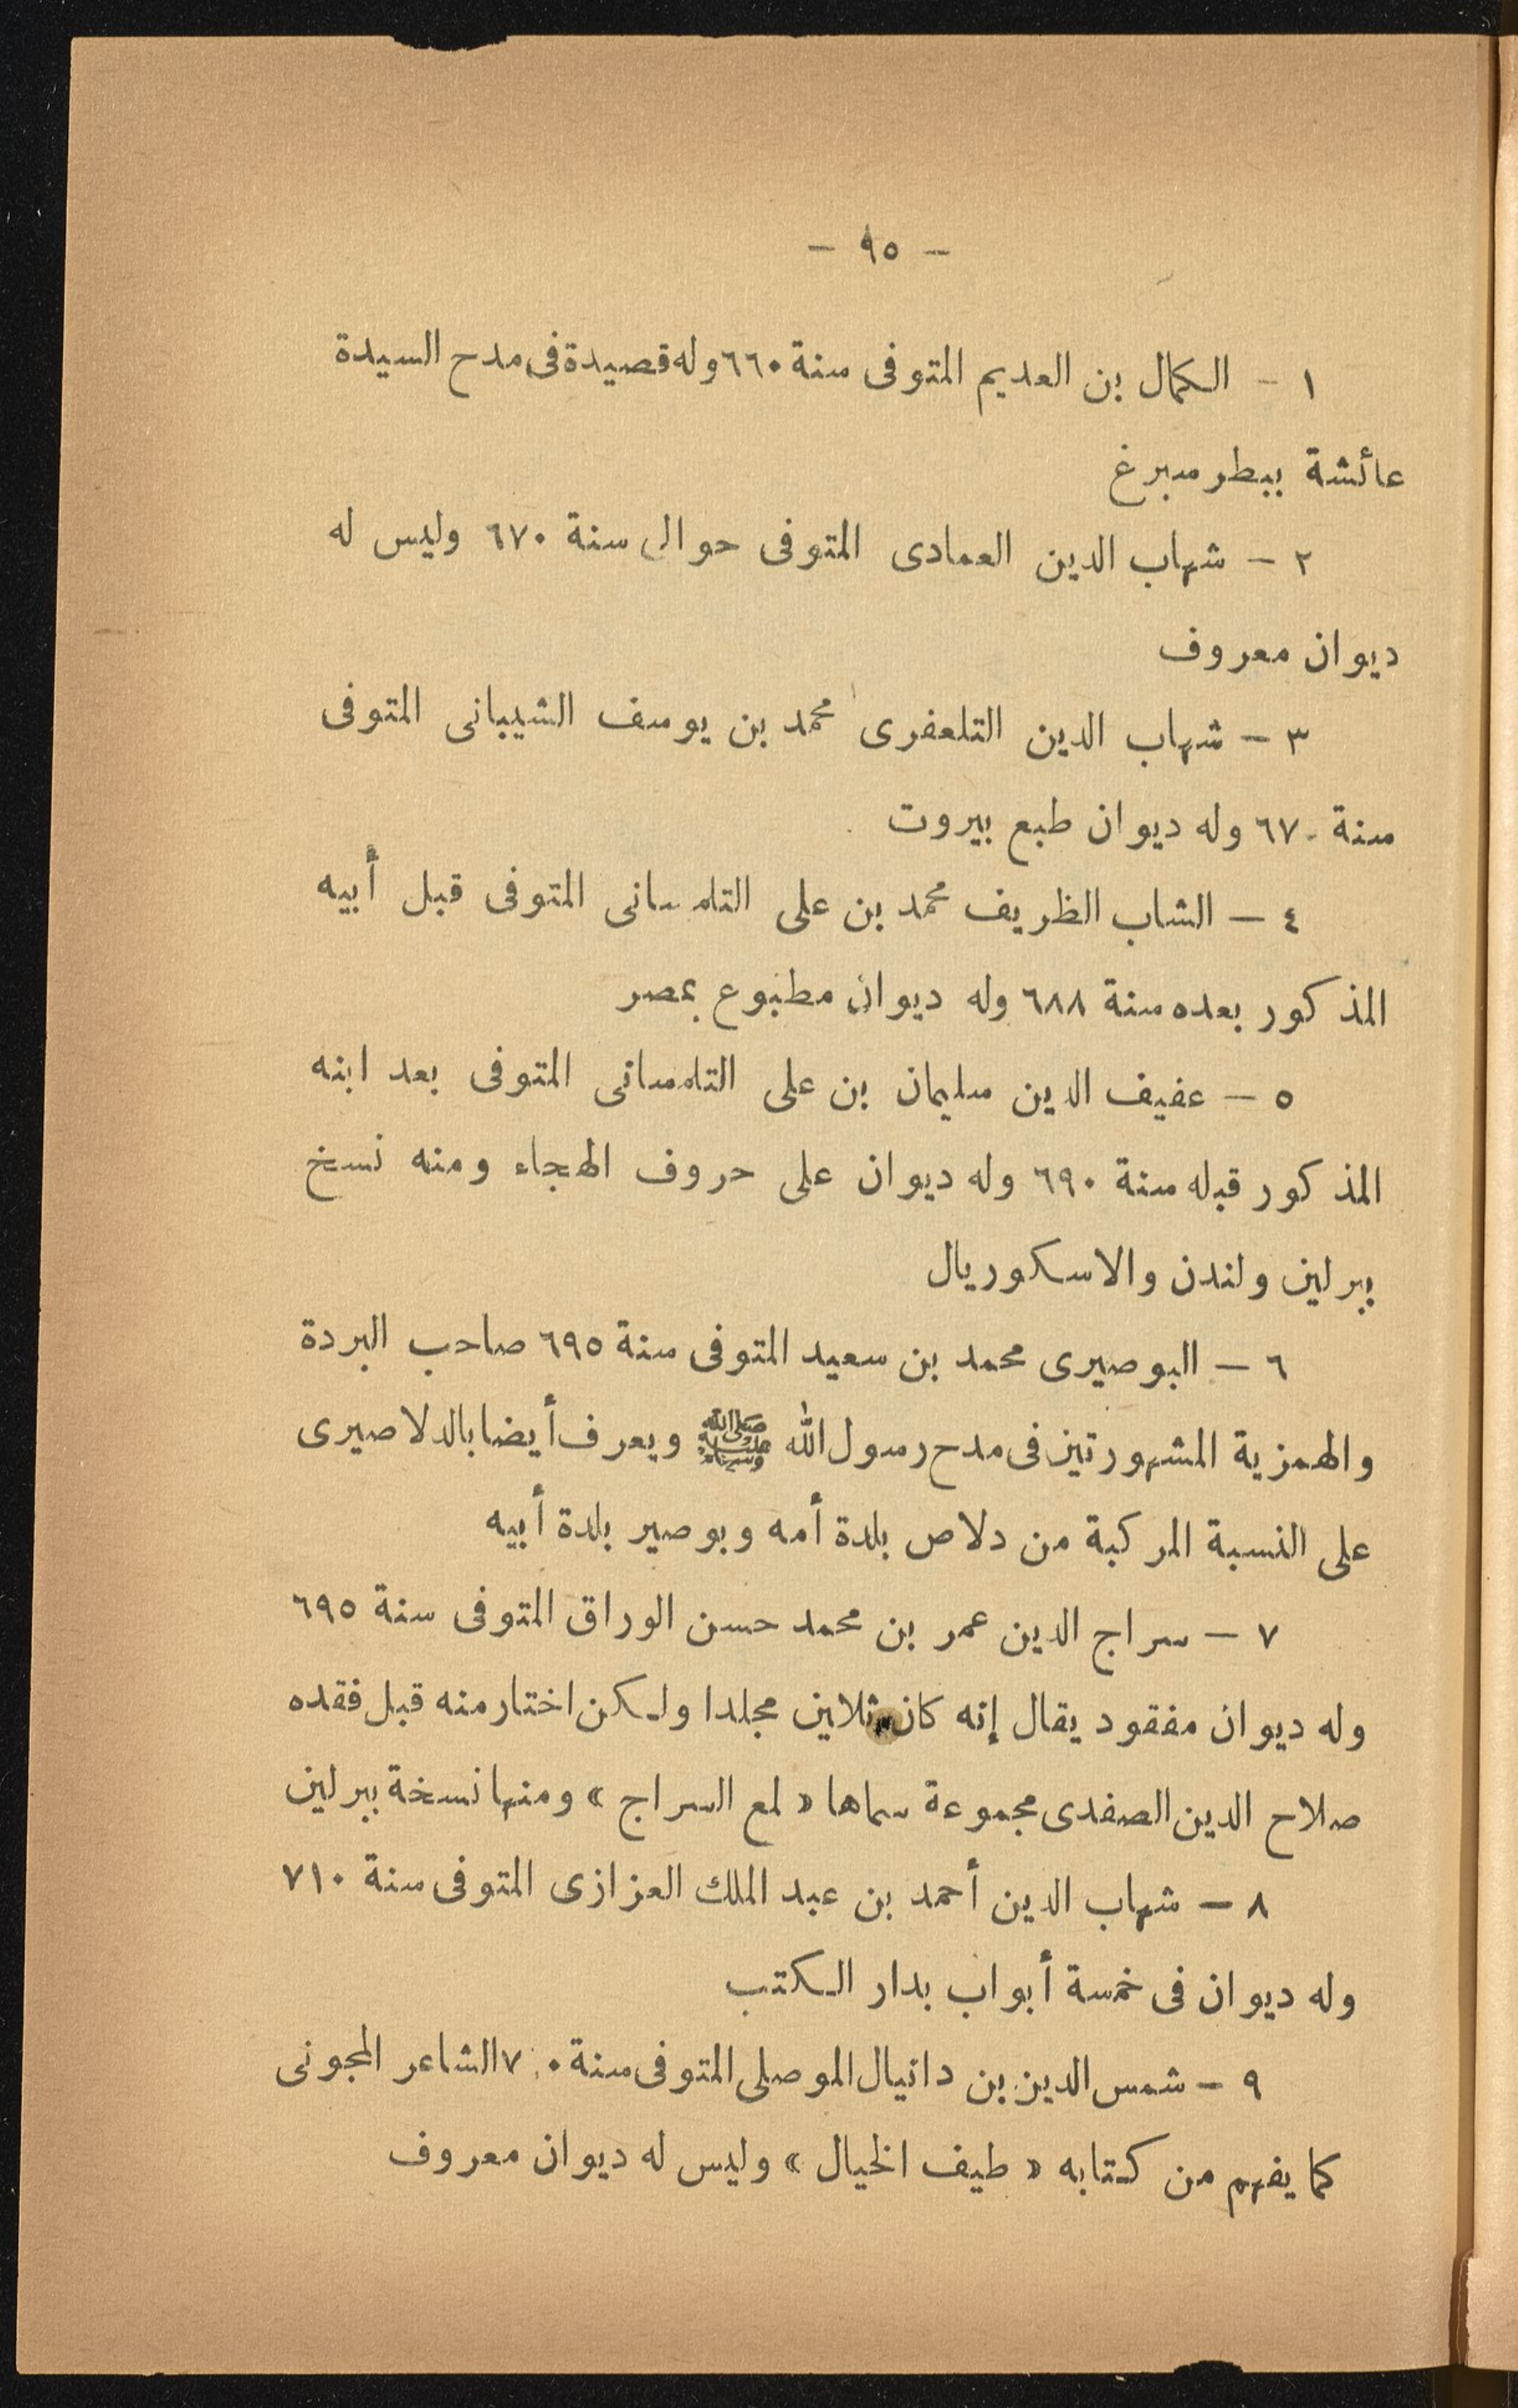 — ٩٥ —
١ — الكمال بن العديم المتوفى سنة ٦٦٠ وله قصيدة فى مدح السيدة
عائشة ببطرسبرغ
٢ — شهاب الدين العمادى المتوفى حوالى سنة ٦٧٠ وليس له
ديوان معروف
٣ — شهاب الدين التلعفرى محمد بن يوسف الشيبانى المتوفى
سنة ٦٧٠ وله ديوان طبع بيروت
٤ — الشاب الظريف محمد بن على التلمسانى المتوفى قبل أبيه
المذكور بعده سنة ٦٨٨ وله ديوان مطبوع بمصر
٥ — عفيف الدين سليمان بن على التلمسانى المتوفى بعد ابنه
المذكور قبله سنة ٦٩٠ وله ديوان على حروف الهجاء ومنه نسخ
ببرلين ولندن والاسكوريال
٦ — البوصيرى محمد بن سعيد المتوفى سنة ٦٩٥ صاحب البردة
والهمزية المشهورتين فى مدح رسول الله ﷺ ويعرف أيضا بالدلاصيرى
على النسبة المركبة من دلاص بلدة أمه وبوصير بلدة أبيه
٧ — سراج الدين عمر بن محمد حسن الوراق المتوفى سنة ٦٩٥
وله ديوان مفقود يقال إنه كان ثلاين مجلدا ولكن اختار منه قبل فقده
صلاح الدين الصفدى مجموعة سماها « لمع السراج » ومنها نسخة ببرلين
٨ — شهاب الدين أحمد بن عبد الملك العزازى المتوفى سنة ٧١٠
وله ديوان فى خمسة أبواب بدار الكتب
٩ — شمس الدين بن دانيال الموصلى المتوفى سنة الشاعر المجونى
كما يفهم من كتابه « طيف الخيال » وليس له ديوان معروف